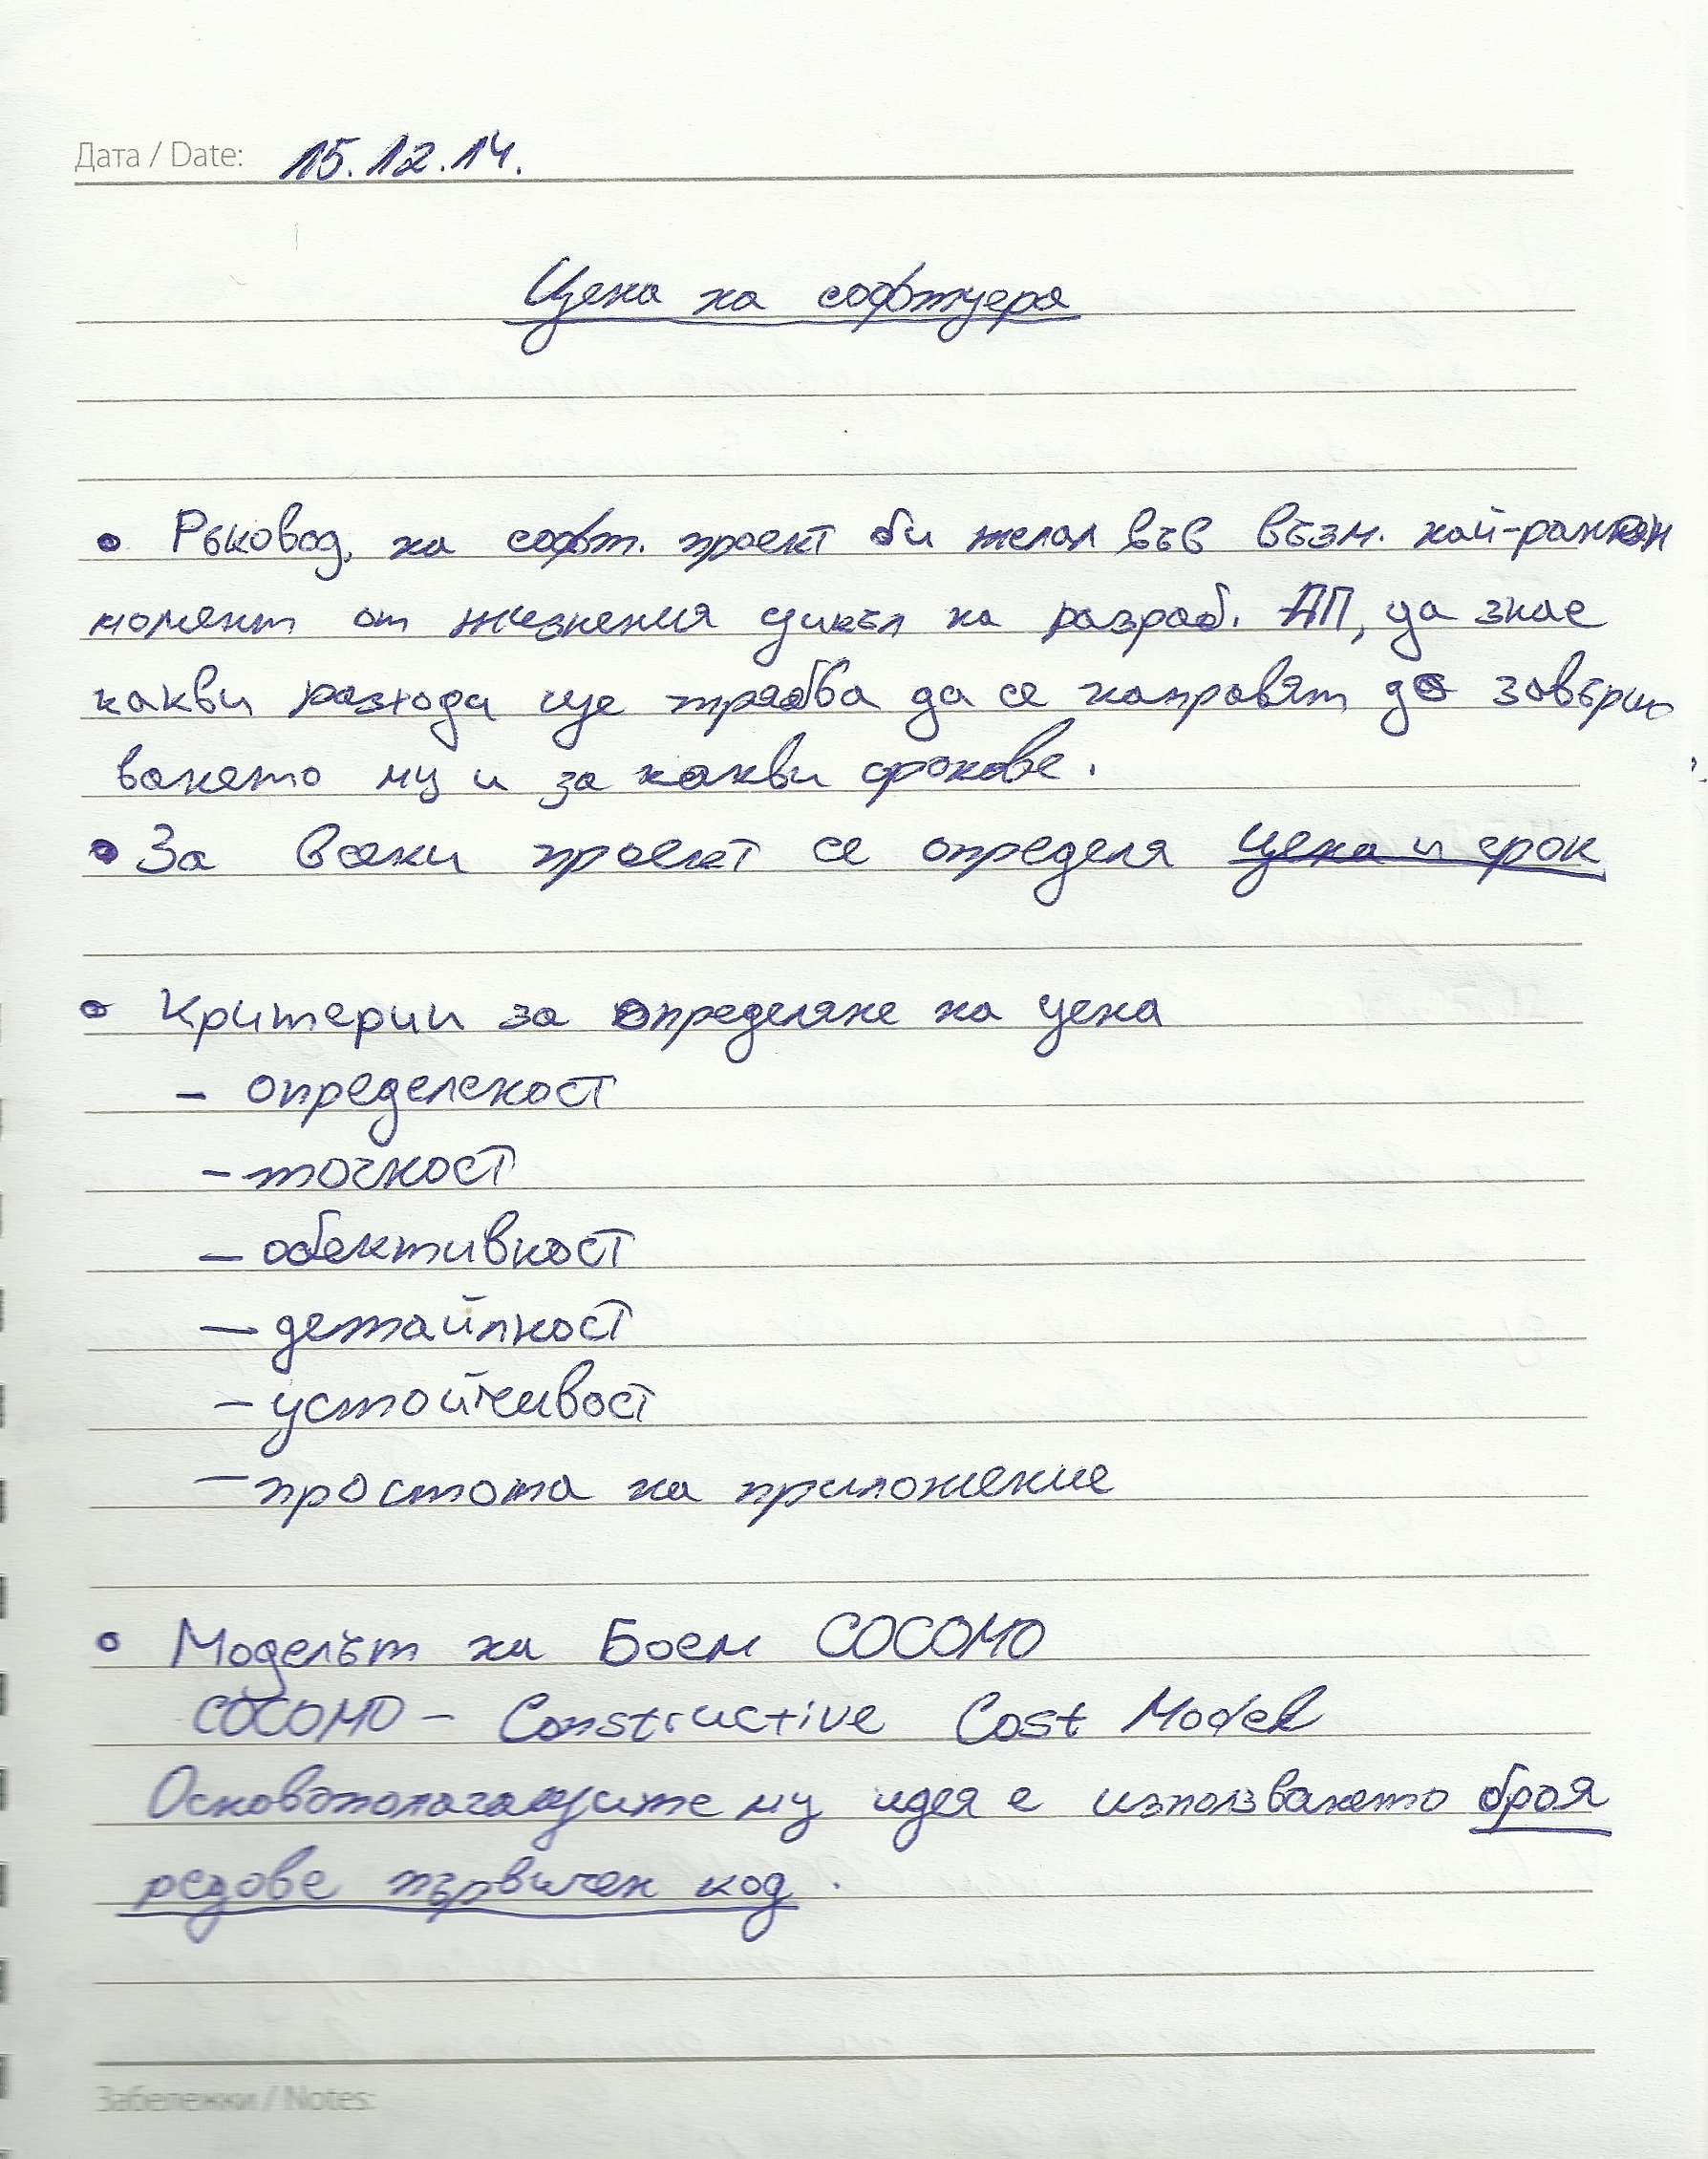 Дата / Date: 15.12.14.
Цена на софтуера
• Ръковод. на софт. проект би желал във възм. най-ранен
момент от жизнения цикъл на разраб. ПП, да знае
какви разхода ще трябва да се направят до завърш
ването му и за какви срокове.
• За всеки проект се определя цена и срок
• Критерии за определяне на цена
- определеност
- точност
- обективност
- детайлност
- устойчивост
- простота на приложение
• Моделът на Боем COCOMO
COCOMO - Constructive Cost Model
Основополагащите му идея е използването броя
редове първичен код.
Забележки / Notes: